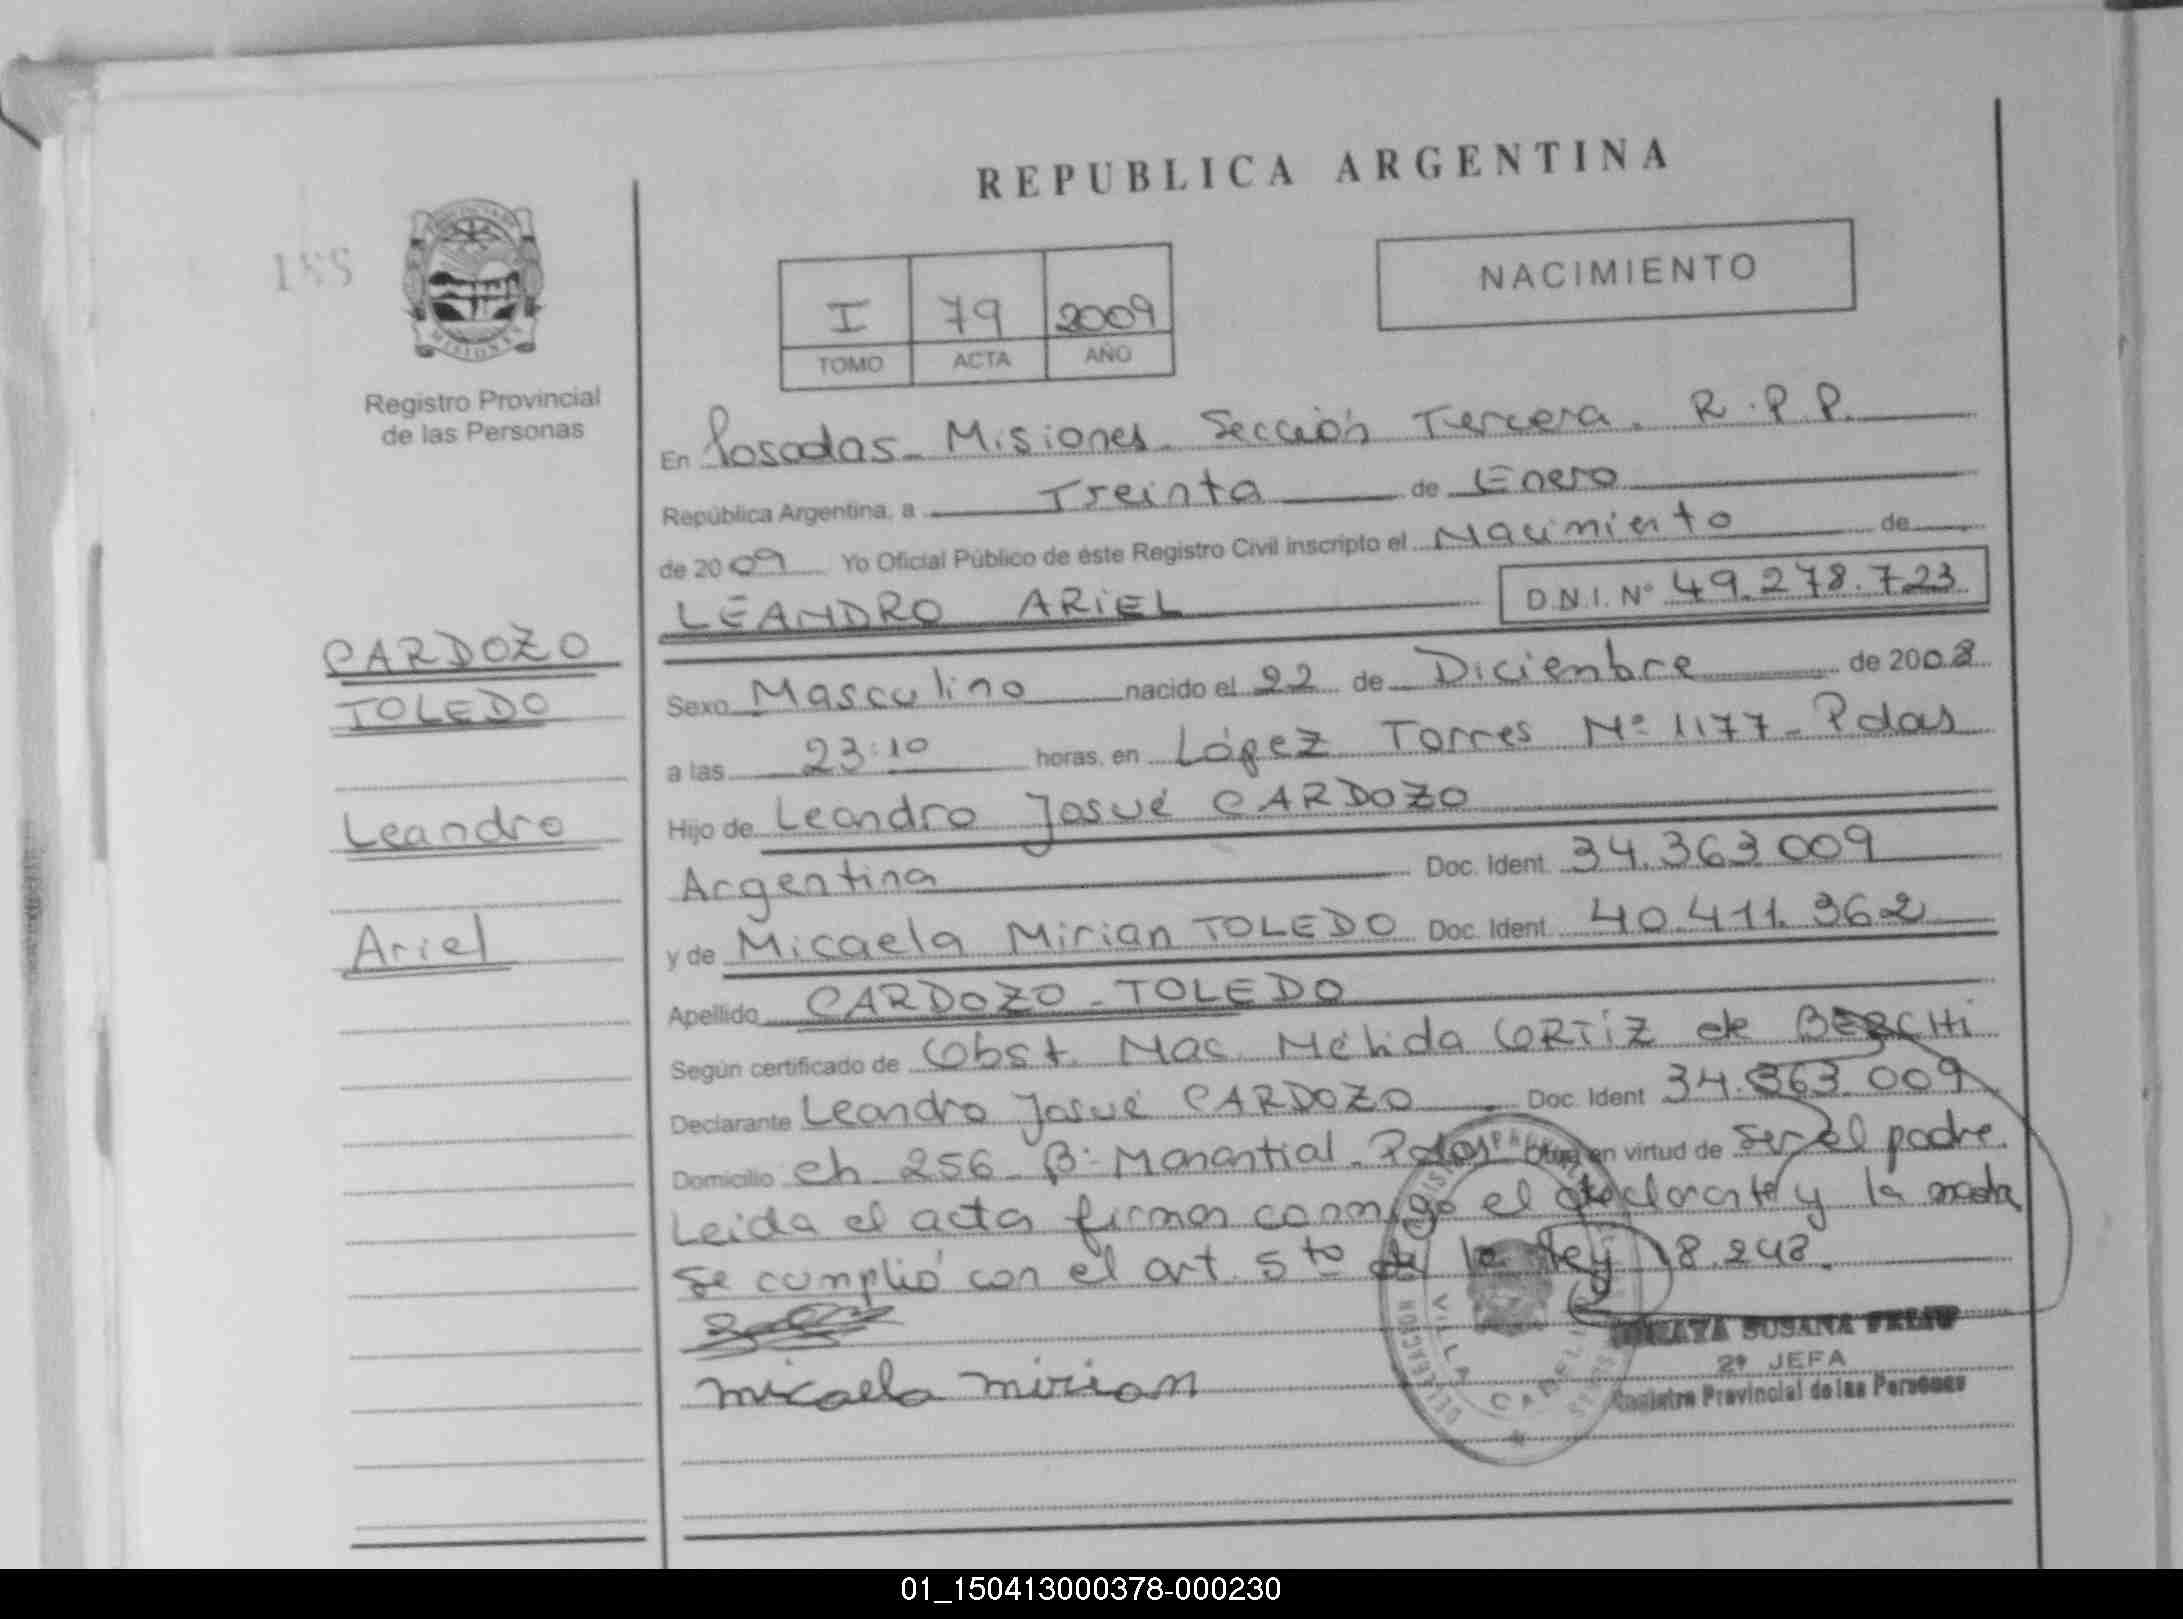 REPUBLICA ARGENTINA
188
MISIONES
Registro Provincial
de las Personas
I 79 2009
TOMO ACTA AÑO
NACIMIENTO
En Posadas - Misiones - Sección Tercera. R.P.P.
República Argentina, a Treinta de Enero
de 2009 Yo Oficial Público de éste Registro Civil inscripto el Nacimiento de
LEANDRO ARIEL D.N.I. Nº 49.278.723
CARDOZO
TOLEDO
Leandro
Ariel
Sexo Masculino nacido el 22 de Diciembre de 2008
a las 23:10 horas, en López Torres Nº 1177 - Pdas
Hijo de Leandro Josué CARDOZO
Argentina Doc. Ident. 34.363.009
y de Micaela Mirian TOLEDO Doc. Ident. 40.411.362
Apellido CARDOZO - TOLEDO
Según certificado de Obst. Nac. Nélida ORTIZ de BERCHI
Declarante Leandro Josué CARDOZO Doc. Ident 34.363.009
Domicilio Ch 256 - Bº Manantial - Pdas en virtud de ser el padre.
Leida el acta firman conmigo el declarante y la madre
se cumplió con el art. 5to de la ley 18.248.
micaela mirian
VILLA CABELLO
SUSANA FELIU
2ª JEFA
Registro Provincial de las Personas
01_150413000378-000230